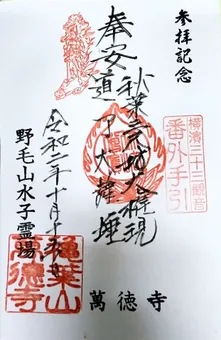 参拝記念
横濱三十三観音
番外手引
奉安
秋葉三尺坊大権現
道了大薩埵
令和二年十月十五日
野毛山水子霊場
萬徳寺
亀葉山
萬德寺